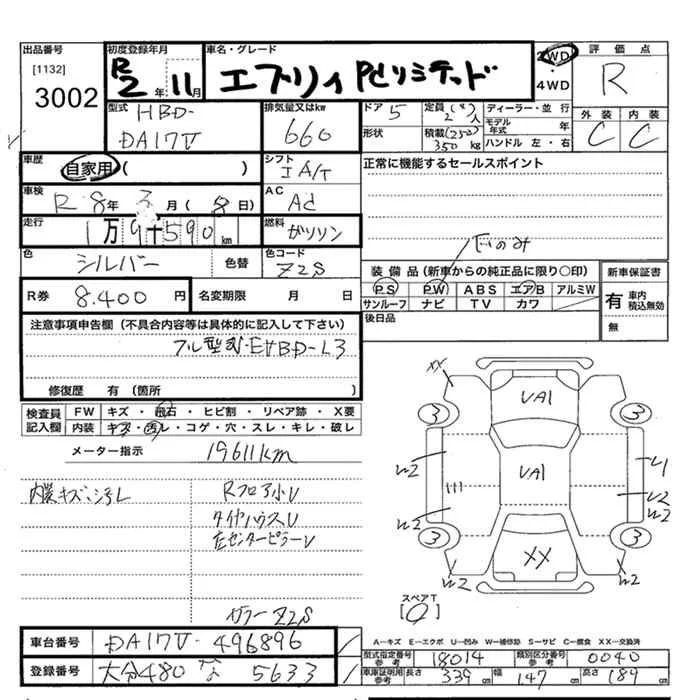 出品番号
[1132]
3002
初度登録年月
R2年 11月
車名・グレード
エブリィ PCリミテッド
2WD
・
4WD
評価点
R
外装 内装
C C
型式
HBD-
DA17V
排気量又はkw
660
ドア 5
形状
定員 2(4)人
積載 (250)
350kg
ディーラー・並行
モデル年式 年
ハンドル 左・右
車歴
自家用 ( )
シフト
IA/T
正常に機能するセールスポイント
車検
R 8年 3月 (8日)
AC
AC
走行
1万9千590km
燃料
ガソリン
Fのみ
色
シルバー
色替
色コード
Z2S
装備品 (新車からの純正品に限り○印)
PS PW ABS エアB アルミW
サンルーフ ナビ TV カワ
新車保証書
有 車内積込無効
無
R券 8.400円
名変期限 月 日
後日品
注意事項申告欄 (不具合内容等は具体的に記入して下さい)
修復歴 有 (箇所 )
検査員記入欄
FW キズ・飛石・ヒビ割・リペア跡・X要
内装 キズ・汚レ・コゲ・穴・スレ・キレ・破レ
メーター指示 19611km
内装キズ、汚レ
Rフロア小U
タイヤハウスU
左センターピラーU
カラーZ2S
XX
VA1
3 3
W2
VA1
U1
U2
W2
W2
3 3
XX
W2
W2
スペアT
[0]
A―キズ E―エクボ U―凹み W―補修跡 S―サビ C―腐食 XX―交換済
車台番号 DA17V-496896
型式指定番号参考 18014 類別区分番号参考 0040
登録番号 大分480 な 5633
車庫証明用参考 長さ 339cm 幅 147cm 高さ 189cm